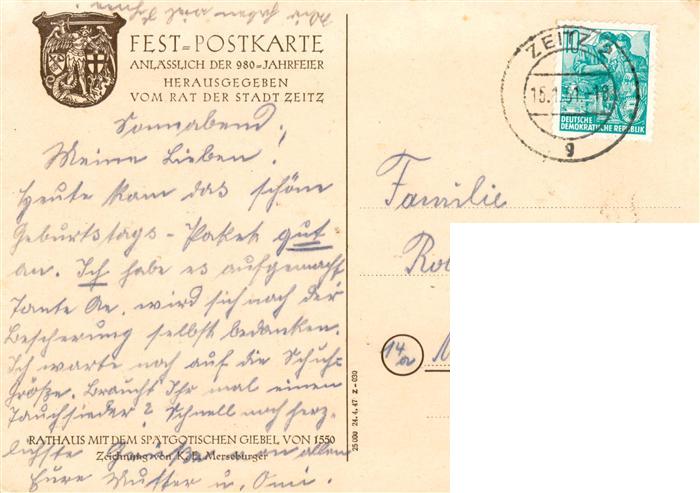 FEST-POSTKARTE
ANLÄSSLICH DER 980-JAHRFEIER
HERAUSGEGEBEN
VOM RAT DER STADT ZEITZ
Sonnabend!
Meine Lieben!
Heute kam das schöne
Geburtstags-Paket gut
an. Ich habe es aufgemacht
Tante Ae. wird sich nach der
Bescherung selbst bedanken.
Ich warte noch auf die Schuh-
größe. Braucht Ihr mal einen
Tauchsieder? Schnell noch herz-
RATHAUS MIT DEM SPÄTGOTISCHEN GIEBEL VON 1550
lichste Grüße an allen
Zeichnung von K. E. Merseburger
Eure Mutter u. Omi.
25000 24.4.47 Z-030
ZEITZ 2
10
DEUTSCHE
DEMOKRATISCHE REPUBLIK
g
Familie
14a